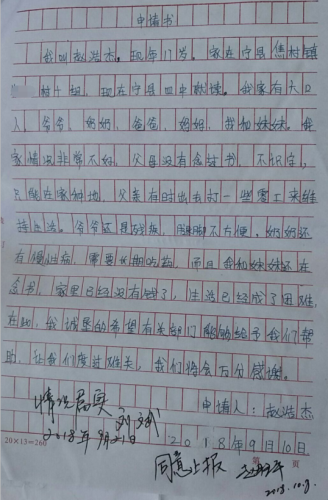 申请书
我叫赵浩杰。现年17岁。家在宁县焦村镇
村十组，现在宁县四中就读。我家有六口
人，爷爷，奶奶，爸爸，妈妈，我和妹妹。我
家情况非常不好，父母没有念过书，不识字，
只能在家种地，父亲有时出去打一些零工来维
持生活。爷爷还是残疾，腿脚不方便，奶奶还
有慢性病，需要长期吃药，而且我和妹妹还在
念书，家里已经没有钱了，生活已经成了困难，
在此，我诚恳的希望有关部门能够给予我们帮
助，让我们度过难关，我们将会万分感谢。
申请人：赵浩杰
情况属实
2018年9月21日
2018年9月10日
20×13=260
同意上报
2018.10.9.